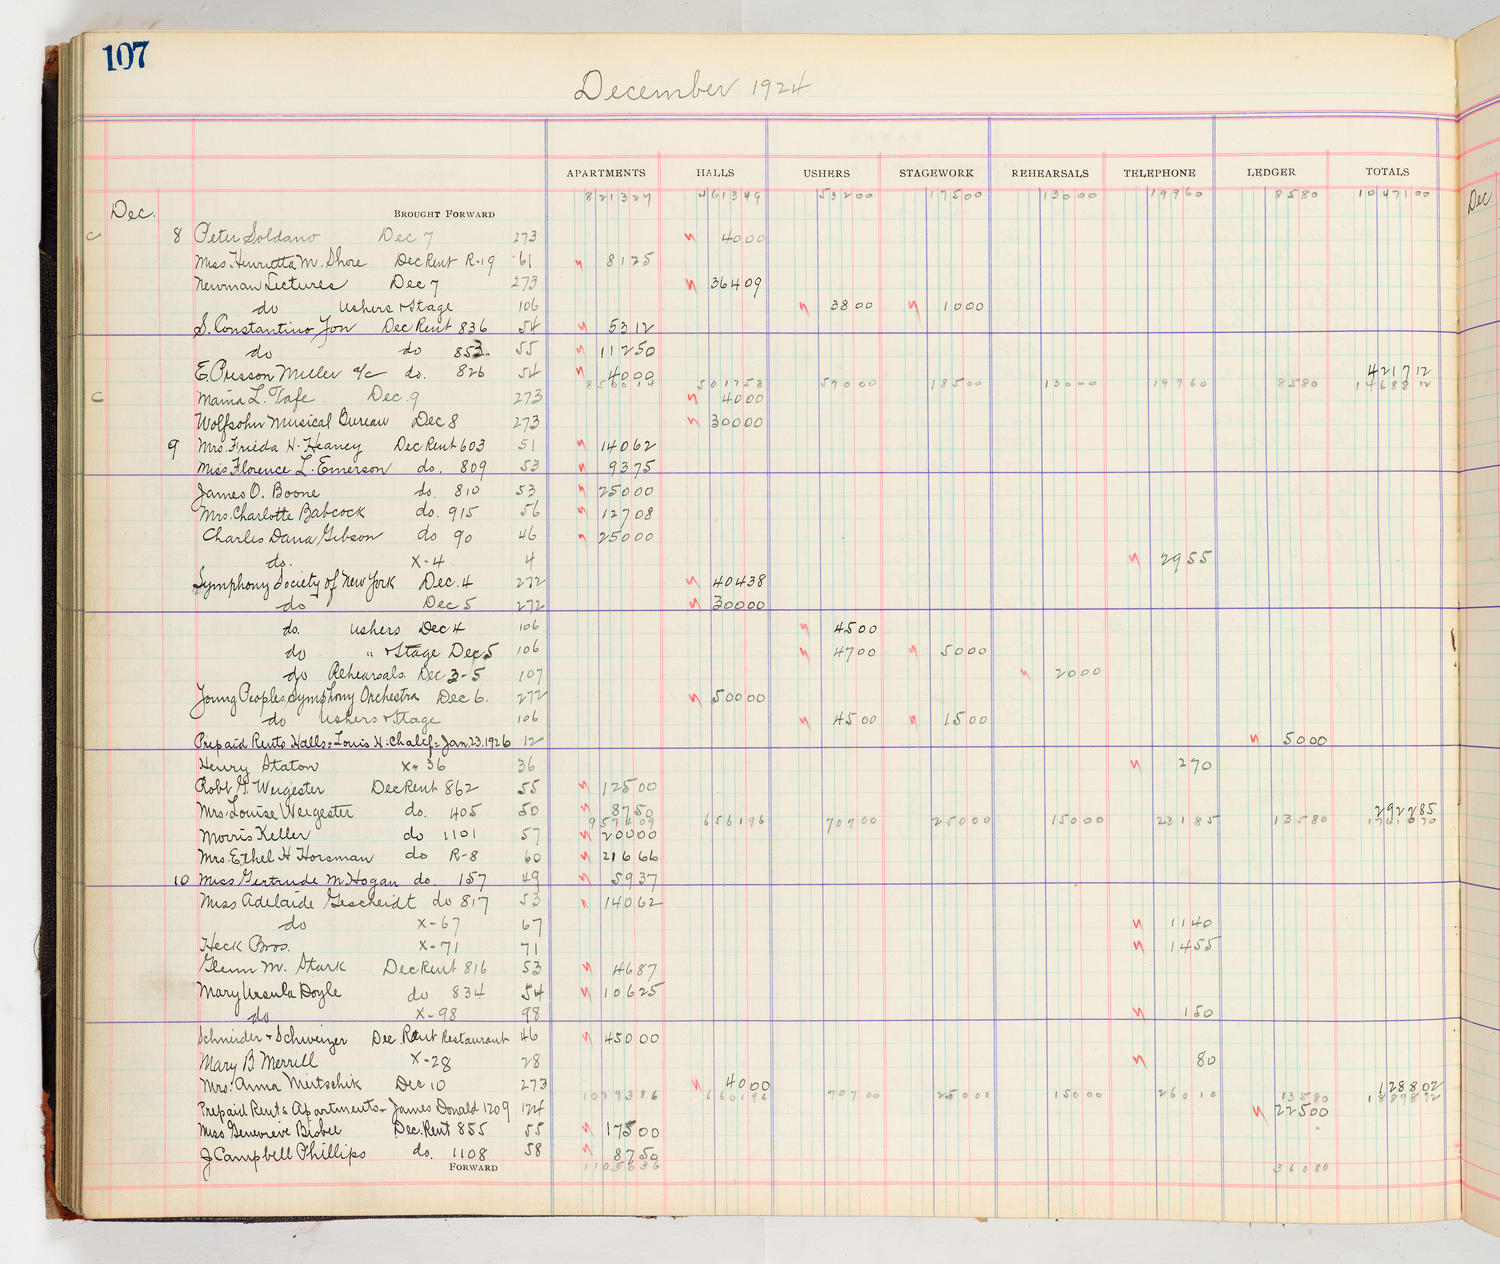 107
December 1924
APARTMENTS HALLS USHERS STAGEWORK REHEARSALS TELEPHONE LEDGER TOTALS
821327 461349 53200 17500 13000 19960 8580 1047100
Dec. BROUGHT FORWARD Dec.
c 8 Peter Soldano Dec 7 273 4000
Miss Henrietta M. Shore Dec Rent R-19 61 8125
Newman Lectures Dec 7 273 36409
do Ushers + Stage 106 3800 1000
S. Constantino Yon Dec Rent 836 54 5312
do do 853 55 11250
E. Presson Miller a/c do. 826 54 4000 421712
856014 501758 57000 18500 13000 19960 8580 1468812
c Maina L. Tafe Dec. 9 273 4000
Wolfsohn Musical Bureau Dec 8 273 30000
9 Mrs. Frieda H. Heaney Dec Rent 603 51 14062
Miss Florence L. Emerson do. 809 53 9375
James O. Boone do. 810 53 25000
Mrs. Charlotte Babcock do. 915 56 12708
Charles Dana Gibson do 90 46 25000
do. X-4 4 2955
Symphony Society of New York Dec. 4 272 40438
do Dec 5 272 30000
do. Ushers Dec 4 106 4500
do " + Stage Dec 5 106 4700 5000
do Rehearsals. Dec 3-5 107 2000
Young Peoples Symphony Orchestra Dec 6. 272 50000
do Ushers + Stage 106 4500 1500
Prepaid Rents Halls - Louis H. Chalif - Jan. 23, 1926 12 5000
Henry Staton X-36 36 270
Robt G. Weigester Dec Rent 862 55 12500
Mrs. Louise Weigester do. 405 50 8750 292285
957409 656196 70700 25000 15000 23185 13580
Morris Keller do 1101 57 20000
Mrs. Ethel H Horsman do R-8 60 21666
10 Miss Gertrude M. Hogan do. 157 49 5937
Miss Adelaide Gescheidt do 817 53 14062
do X-67 67 1140
Heck Bros. X-71 71 1455
Glenn M. Stark Dec Rent 816 53 4687
Mary Ursula Doyle do 834 54 10625
do X-98 98 150
Schneider + Schweizer Dec Rent Restaurant 46 45000
Mary B Merrill X-28 28 80
Mrs. Anna Mirtschik Dec 10 273 4000 128802
1079386 660196 70700 25000 15000 26010 13580 1889872
Prepaid Rents Apartments - James Donald 1209 124 22500
Miss Genevieve Bisbee Dec. Rent 855 55 17500
J Campbell Phillips do. 1108 58 8750
FORWARD 1105636 36080